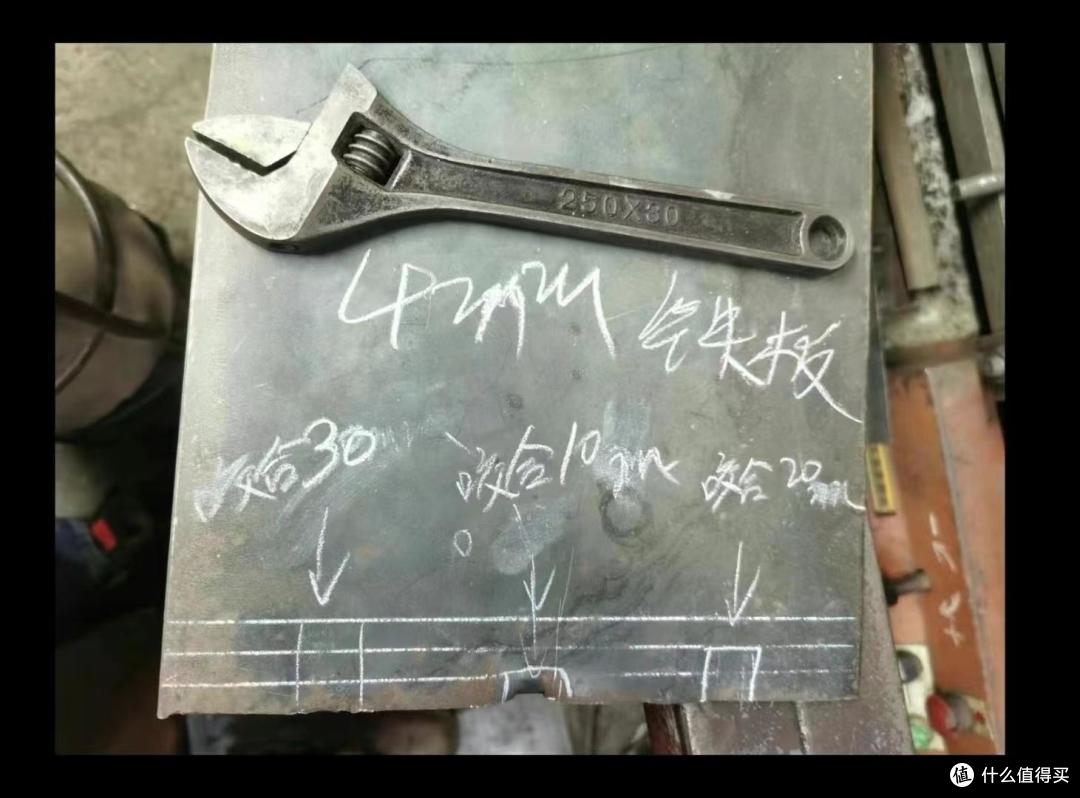 250X30
4mm 铁板
咬合30mm 咬合10mm 咬合20mm
值 什么值得买